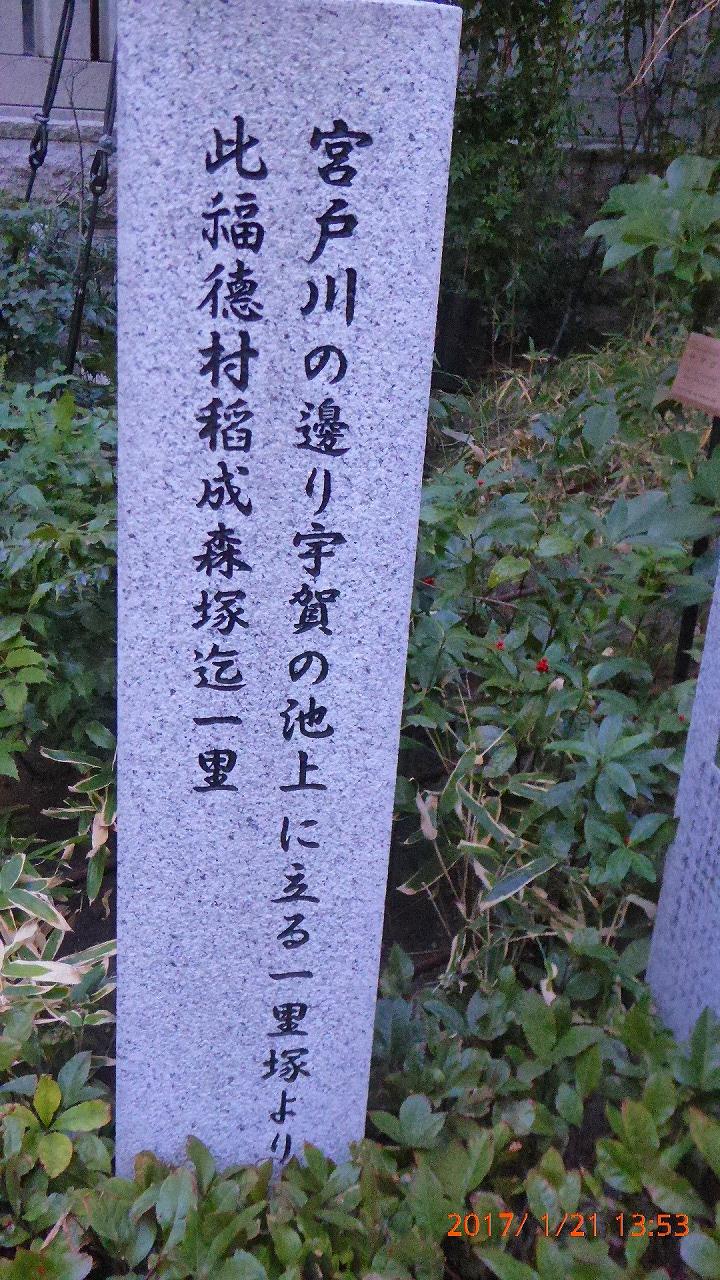 宮戸川の邊り宇賀の池上に立る一里塚より
此福德村稻成森塚迄一里
2017/ 1/21 13:53